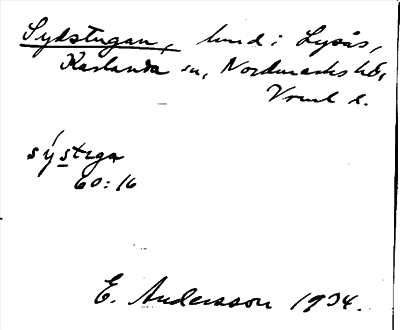 Sydstugan, lund i Lysås,
Karlanda sn, Nordmarks hd,
Vrml l.
sýstega
60:16
E. Andersson 1934.